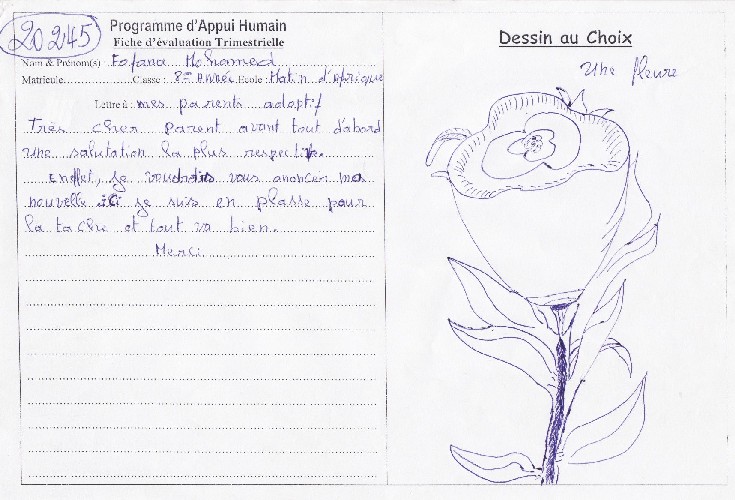 20245
Programme d'Appui Humain
Fiche d'évaluation Trimestrielle
Nom & Prénom(s) Fofana Mohamed
Matricule Classe : 8ème année Ecole : Matin d'afrique
Lettre à : mes parents adoptif
Très cher Parent avant tout d'abord
une salutation la plus respective.
Enffet, je voudrais vous anoncer mes
nouvelle ici je suis en plasse pour
la tache et tout va bien.
Merci
Dessin au Choix
Une fleure